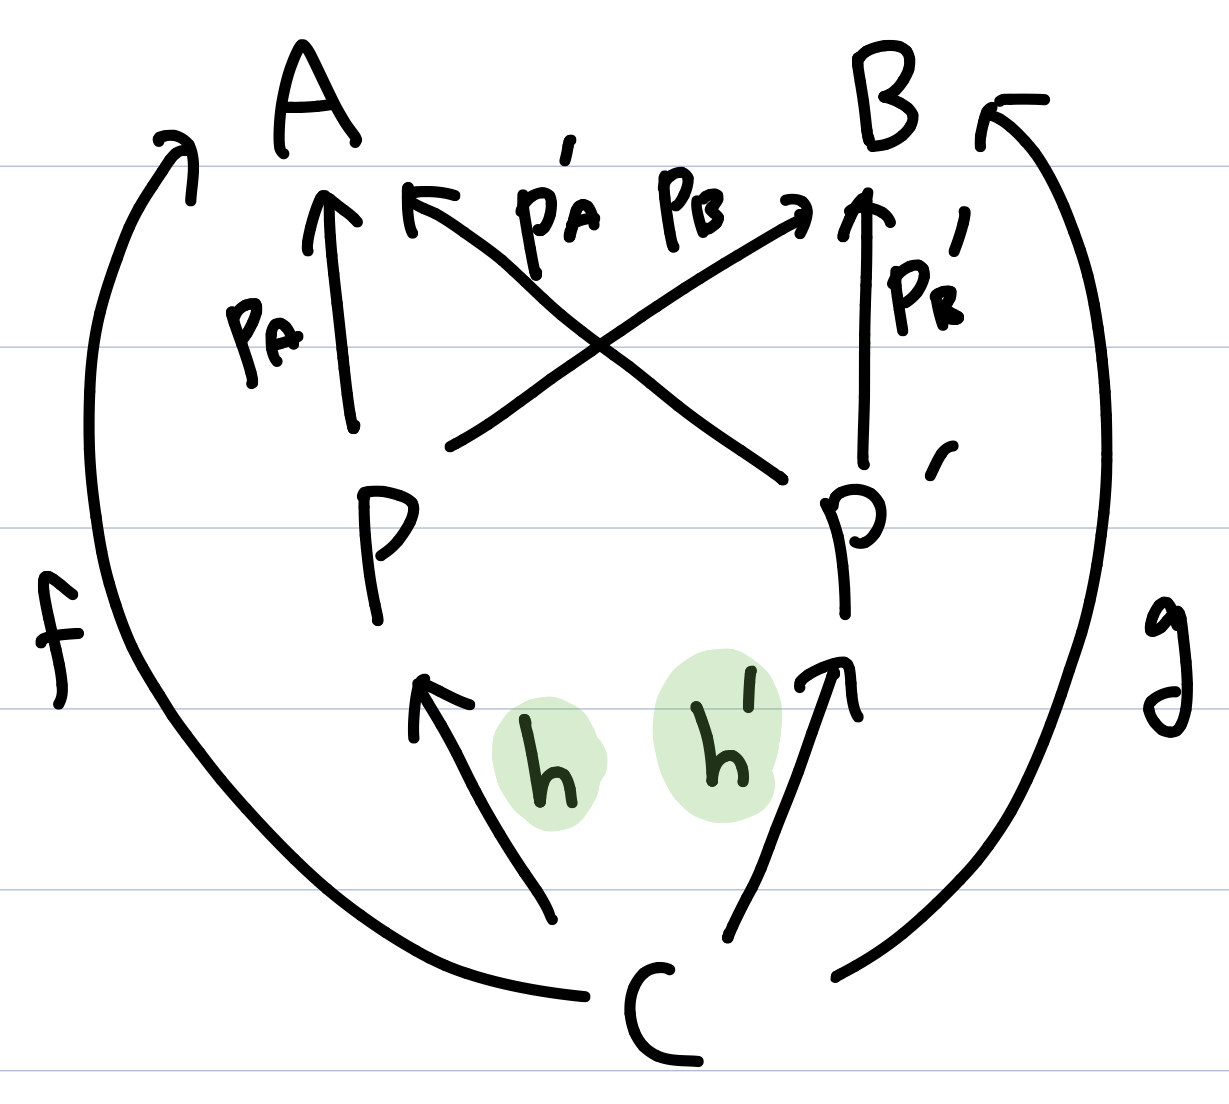 A B
p'A pB
pA p'B
P P'
f g
h h'
C